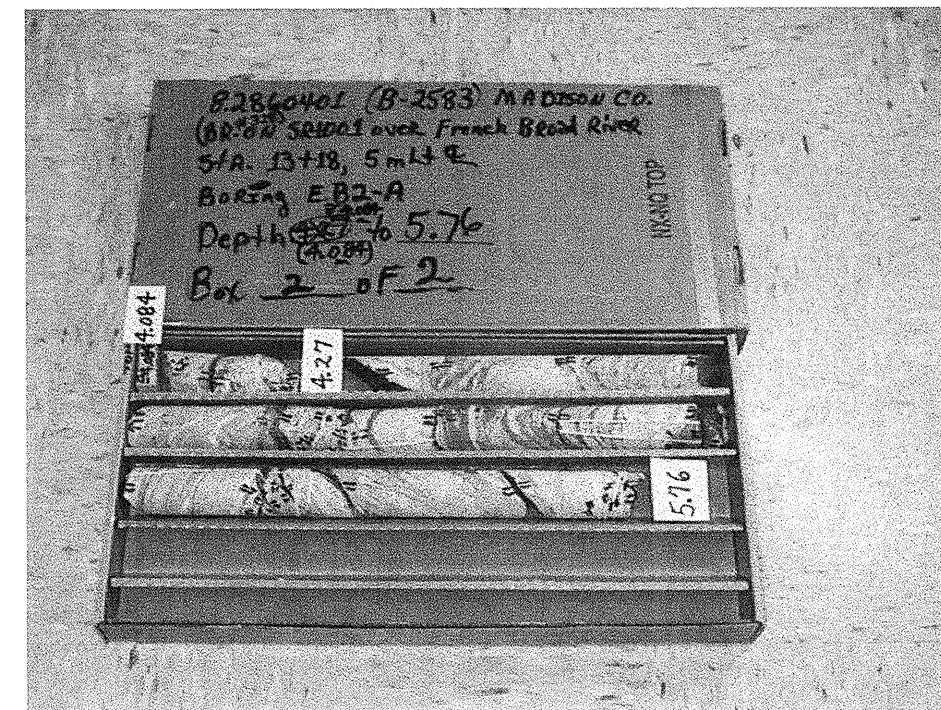 8.2860401 (B-2583) MADISON CO.
SR1001 over French Broad River
STA. 13+18, 5 m Lt ℄
BORING EB2-A
Depth (4.084) to 5.76
Box 2 of 2
NX-NO TOP
4.084
4.27
5.76